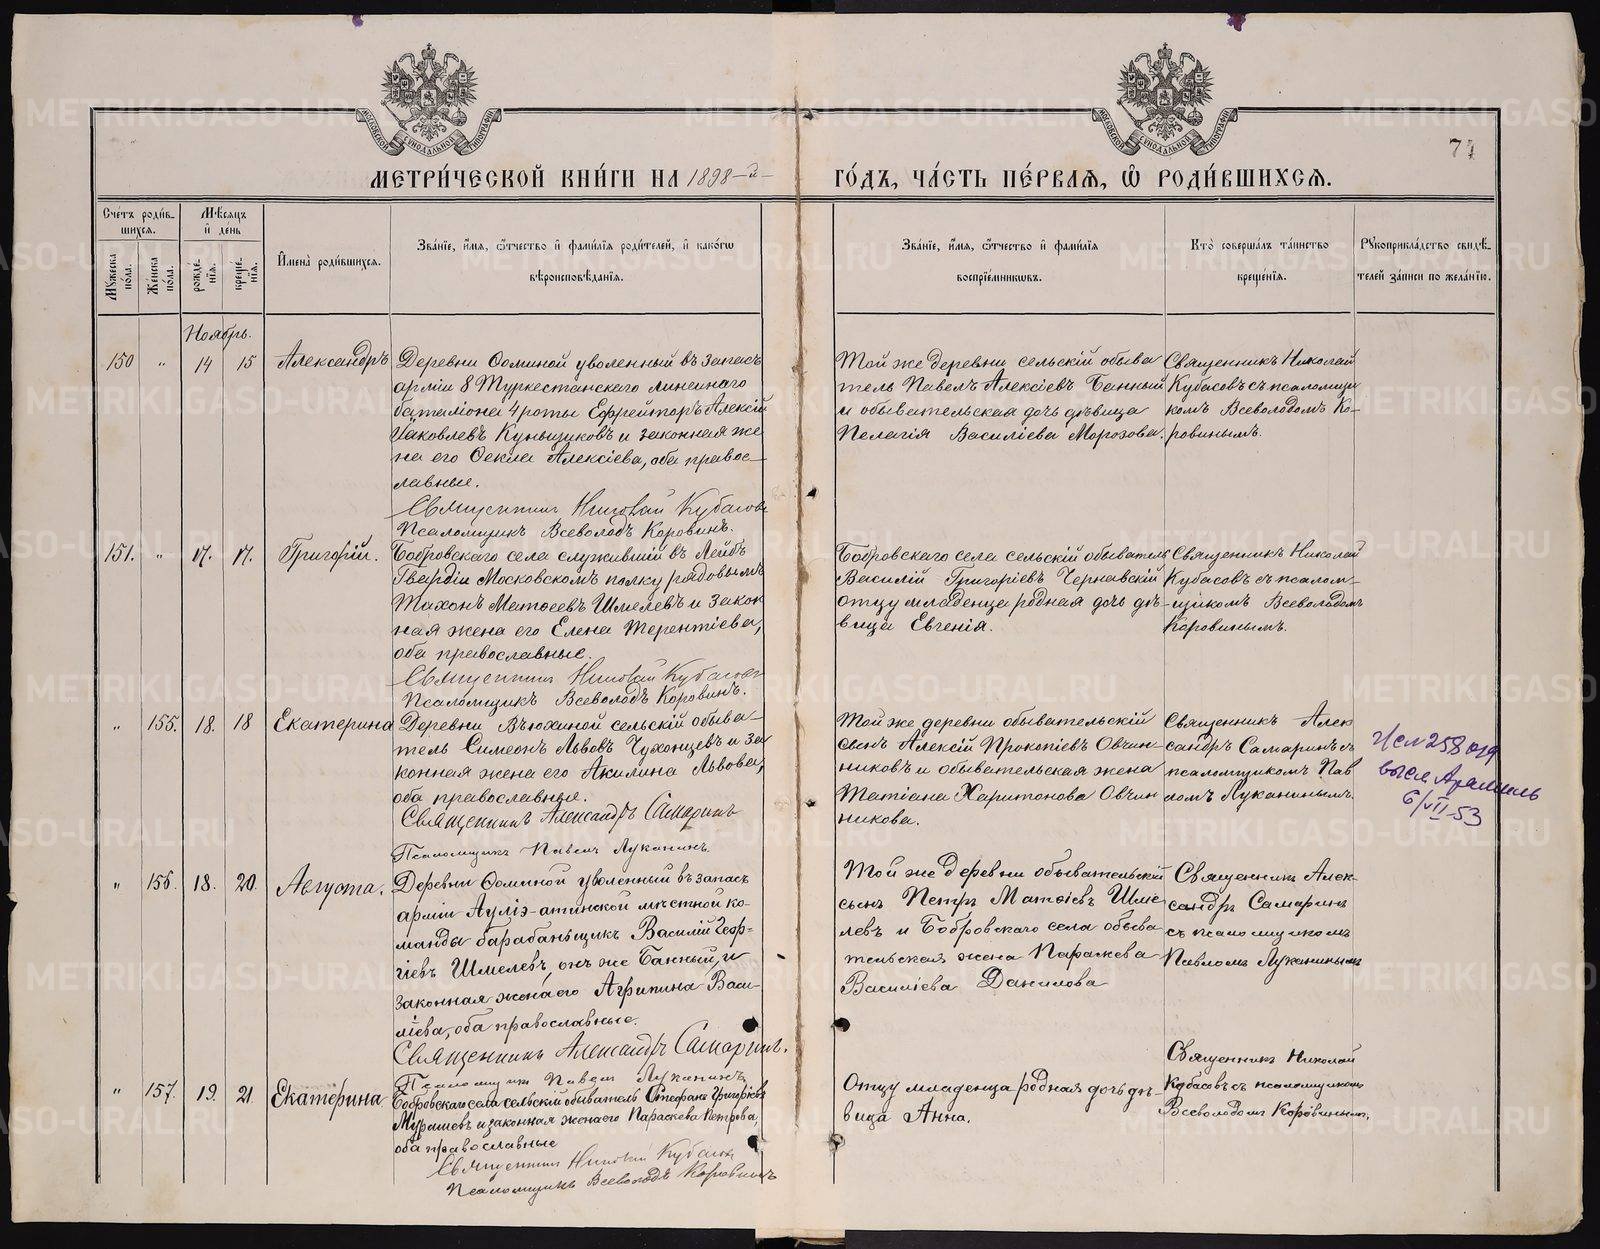 МЕТРИ́ЧЕСКОЙ КНИ́ГИ НА 1898-й
ГО́ДЪ, ЧА́СТЬ ПЕ́РВАѦ, Ѡ҆ РОДИ́ВШИХСѦ.
74
Сче́тъ роди́в-
шихсѧ.
Му́жеска по́ла.
Же́нска по́ла.
Мѣ́сѧцъ
и҆ де́нь
рожде́-
нїѧ.
креще́-
нїѧ.
И҆мена̀ роди́вшихсѧ.
Зва́нїе, и҆́мѧ, ѻ҆́тчество и҆ фами́лїѧ роди́телей, и҆ како́гѡ
вѣроисповѣ́данїѧ.
Зва́нїе, и҆́мѧ, ѻ҆́тчество и҆ фами́лїѧ
воспрїе́мниковъ.
Кто̀ соверша́лъ та́инство
креще́нїѧ.
Рꙋкоприкла́дство свидѣ́-
телей за́писи по жела́нїю.
Ноябрь.
150 " 14 15 Александръ
Деревни Ѳоминой уволенный въ запасъ
арміи 8 Туркестанскаго линейнаго
баталіона 4 роты Ефрейторъ Алексій
Іаковлевъ Куньщиковъ и законная же
на его Ѳекла Алексіева, оба правос-
лавные.
Священникъ Николай Кубасовъ
Псаломщикъ Всеволодъ Коровинъ.
Той же деревни сельскій обыва
тель Павелъ Алексіевъ Банный
и обывательская дочь дѣвица
Пелагія Василіева Морозова.
Священникъ Николай
Кубасовъ съ псаломщи
комъ Всеволодомъ Ко-
ровинымъ.
151. " 17. 17. Григорій.
Бобровскаго села служившій въ Лейбъ
Гвардіи Московскомъ полку рядовымъ
Тихонъ Матѳеевъ Шмелевъ и закон
ная жена его Елена Терентіева,
оба православные.
Священникъ Николай Кубасовъ
Псаломщикъ Всеволодъ Коровинъ.
Бобровскаго села сельскій обыватель
Василій Григоріевъ Чернавскій
отцу младенца родная дочь дѣ-
вица Евгенія.
Священникъ Николай
Кубасовъ съ псалом-
щикомъ Всеволодомъ
Коровинымъ.
" 155. 18. 18 Екатерина
Деревни Вьюхиной сельскій обыва-
тель Симеонъ Львовъ Чухонцевъ и за
конная жена его Акилина Львова,
оба православные.
Священникъ Александръ Самаринъ
Псаломщикъ Павелъ Луканинъ.
Той же деревни обывательскій
сынъ Алексій Прокопіевъ Овчин-
никовъ и обывательская жена
Татіана Харитонова Овчин
никова.
Священникъ Алек
сандръ Самаринъ съ
псаломщикомъ Пав
ломъ Луканинымъ.
258
6/VII-53
" 156. 18. 20. Августа.
Деревни Ѳоминой уволенный въ запасъ
арміи Ауліэ-атинской мѣстной ко-
манды барабанщикъ Василій Геор-
гіевъ Шмелевъ, онъ же Банный, и
законная жена его Агрипина Васи-
ліева, оба православные.
Священникъ Александръ Самаринъ.
Псаломщикъ Павелъ Луканинъ
Той же деревни обывательскій
сынъ Петръ Матѳіевъ Шме
левъ и Бобровскаго села обыва
тельская жена Параскева
Василіева Данилова
Священникъ Алек-
сандръ Самаринъ
съ псаломщикомъ
Павломъ Луканинымъ
" 157. 19. 21. Екатерина.
Бобровскаго села сельскій обыватель Стефанъ Григоріевъ
Мурашевъ и законная жена его Параскева Петрова,
оба православные
Священникъ Николай Кубасовъ
Псаломщикъ Всеволодъ Коровинъ
Отцу младенца родная дочь дѣ-
вица Анна.
Священникъ Николай
Кубасовъ съ псаломщикомъ
Всеволодомъ Коровинымъ.